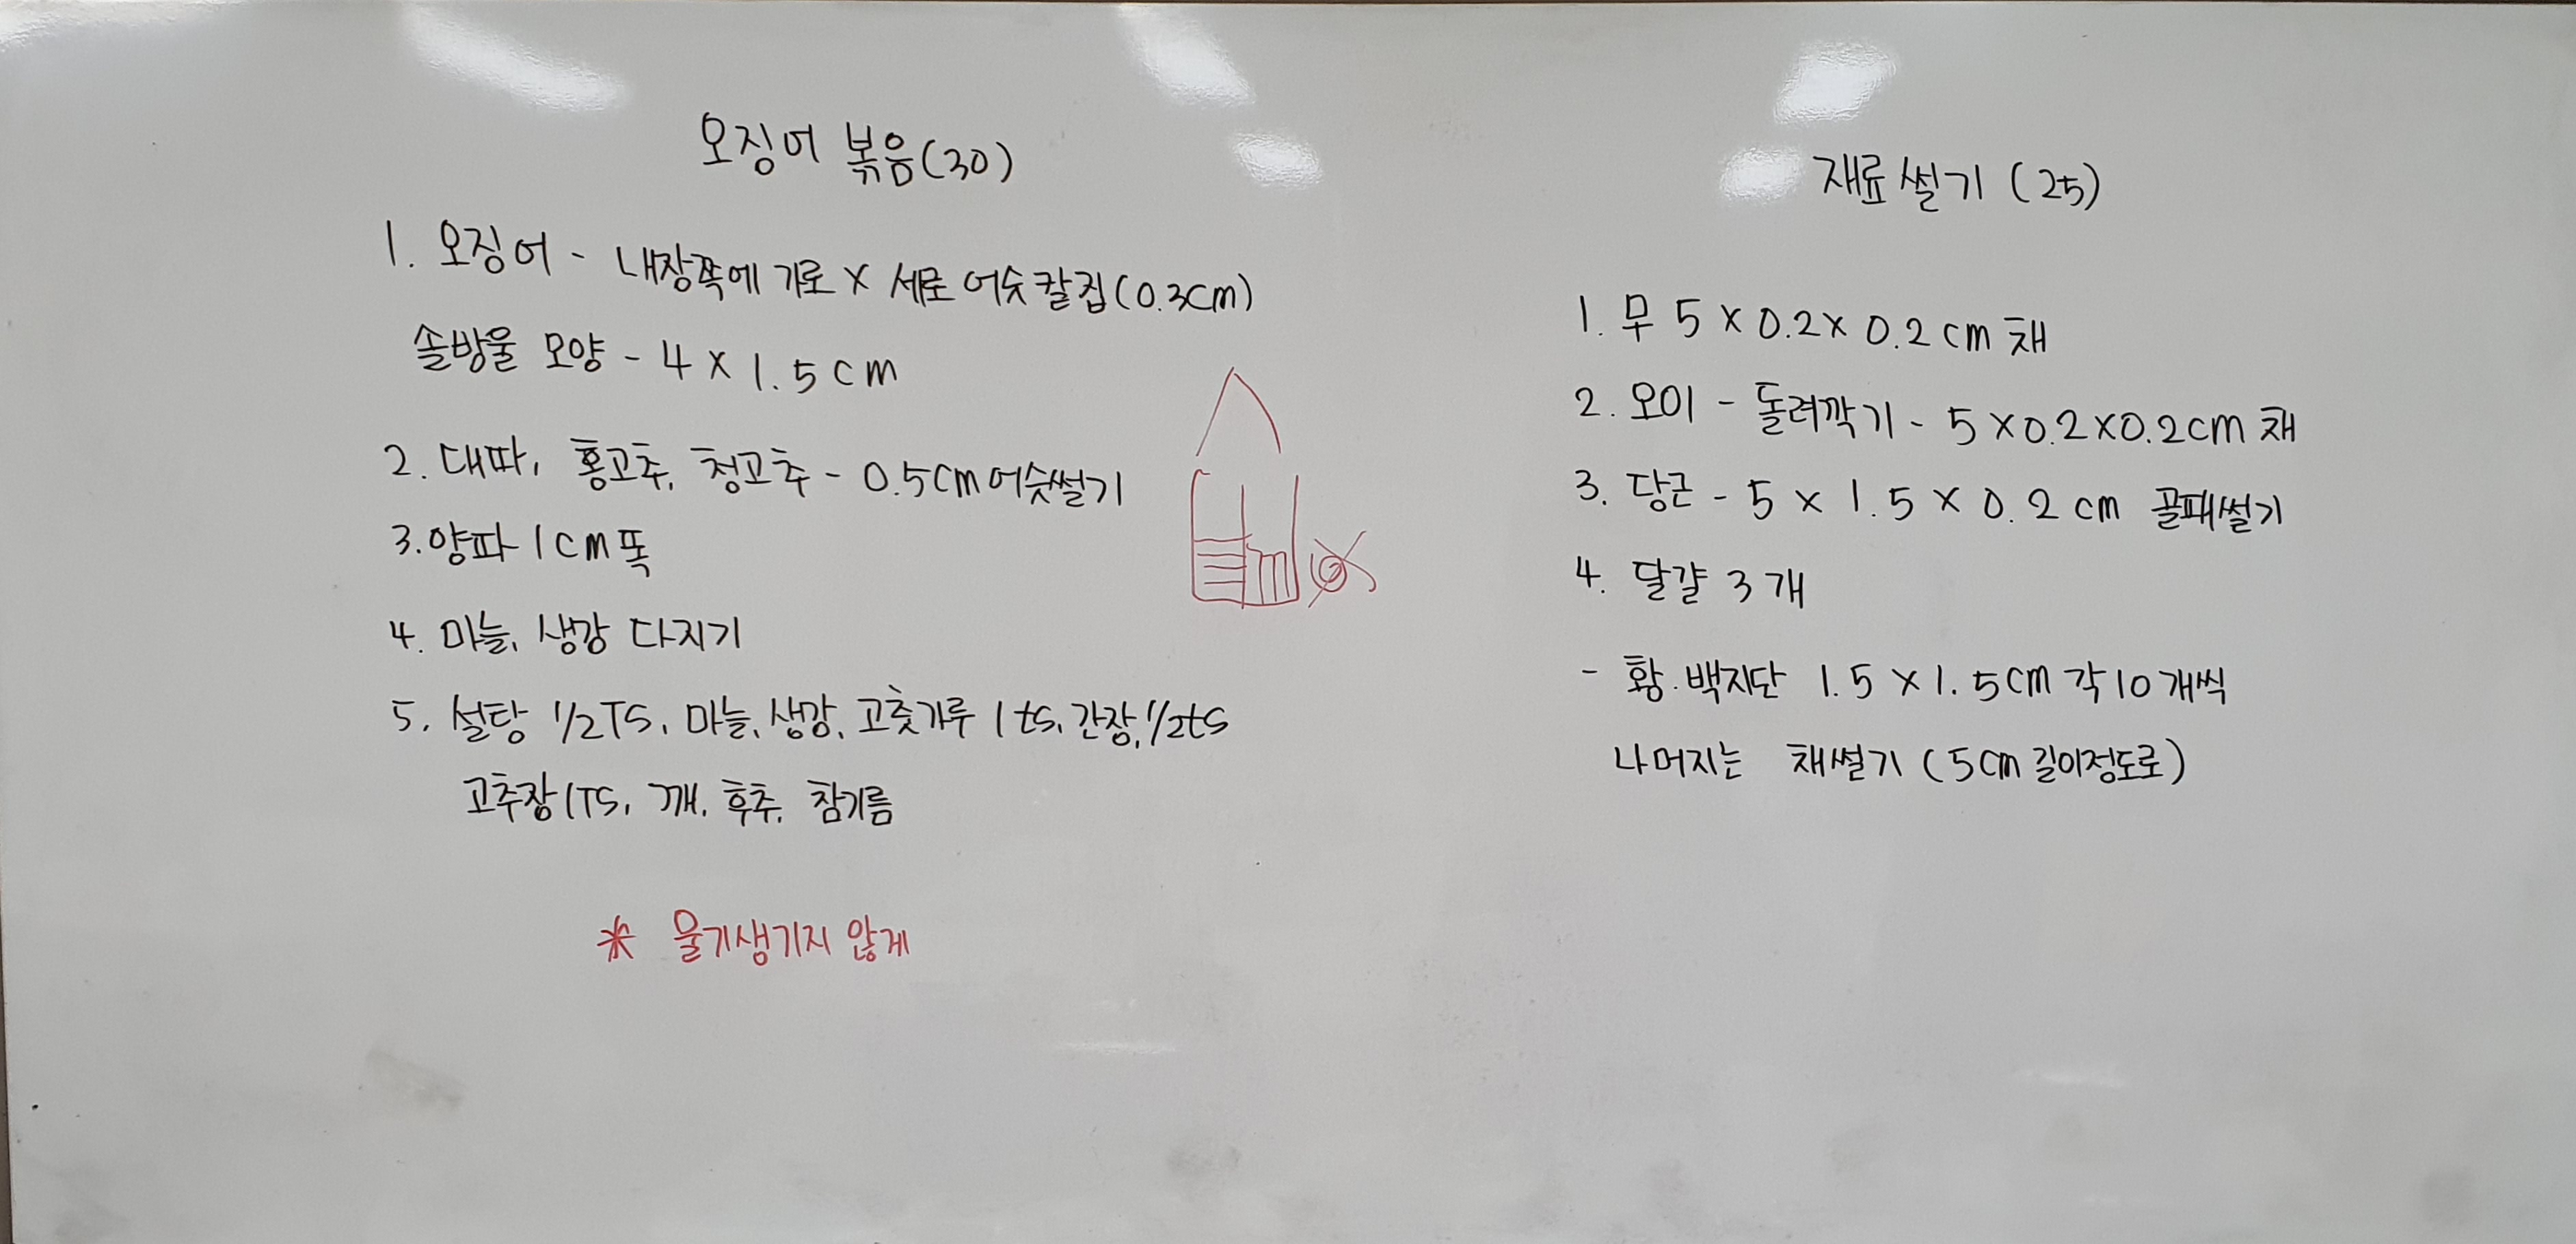 오징어 볶음(30)
1. 오징어 - 내장쪽에 가로 X 세로 어슷칼집(0.3cm)
솔방울 모양 - 4 X 1.5cm
2. 대파, 홍고추, 청고추 - 0.5cm 어슷썰기
3. 양파 1cm 폭
4. 마늘, 생강 다지기
5. 설탕 1/2TS, 마늘, 생강, 고춧가루 1ts, 간장, 1/2ts
고추장 1TS, 깨, 후추, 참기름
* 물기생기지 않게
재료썰기 (25)
1. 무 5 X 0.2 X 0.2cm 채
2. 오이 - 돌려깍기 - 5 X 0.2 X 0.2cm 채
3. 당근 - 5 X 1.5 X 0.2cm 골패썰기
4. 달걀 3개
- 황.백지단 1.5 X 1.5cm 각 10개씩
나머지는 채썰기 (5cm 길이정도로)